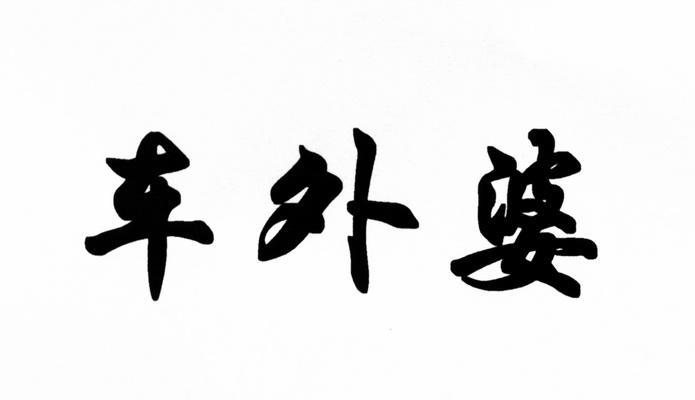 车外婆